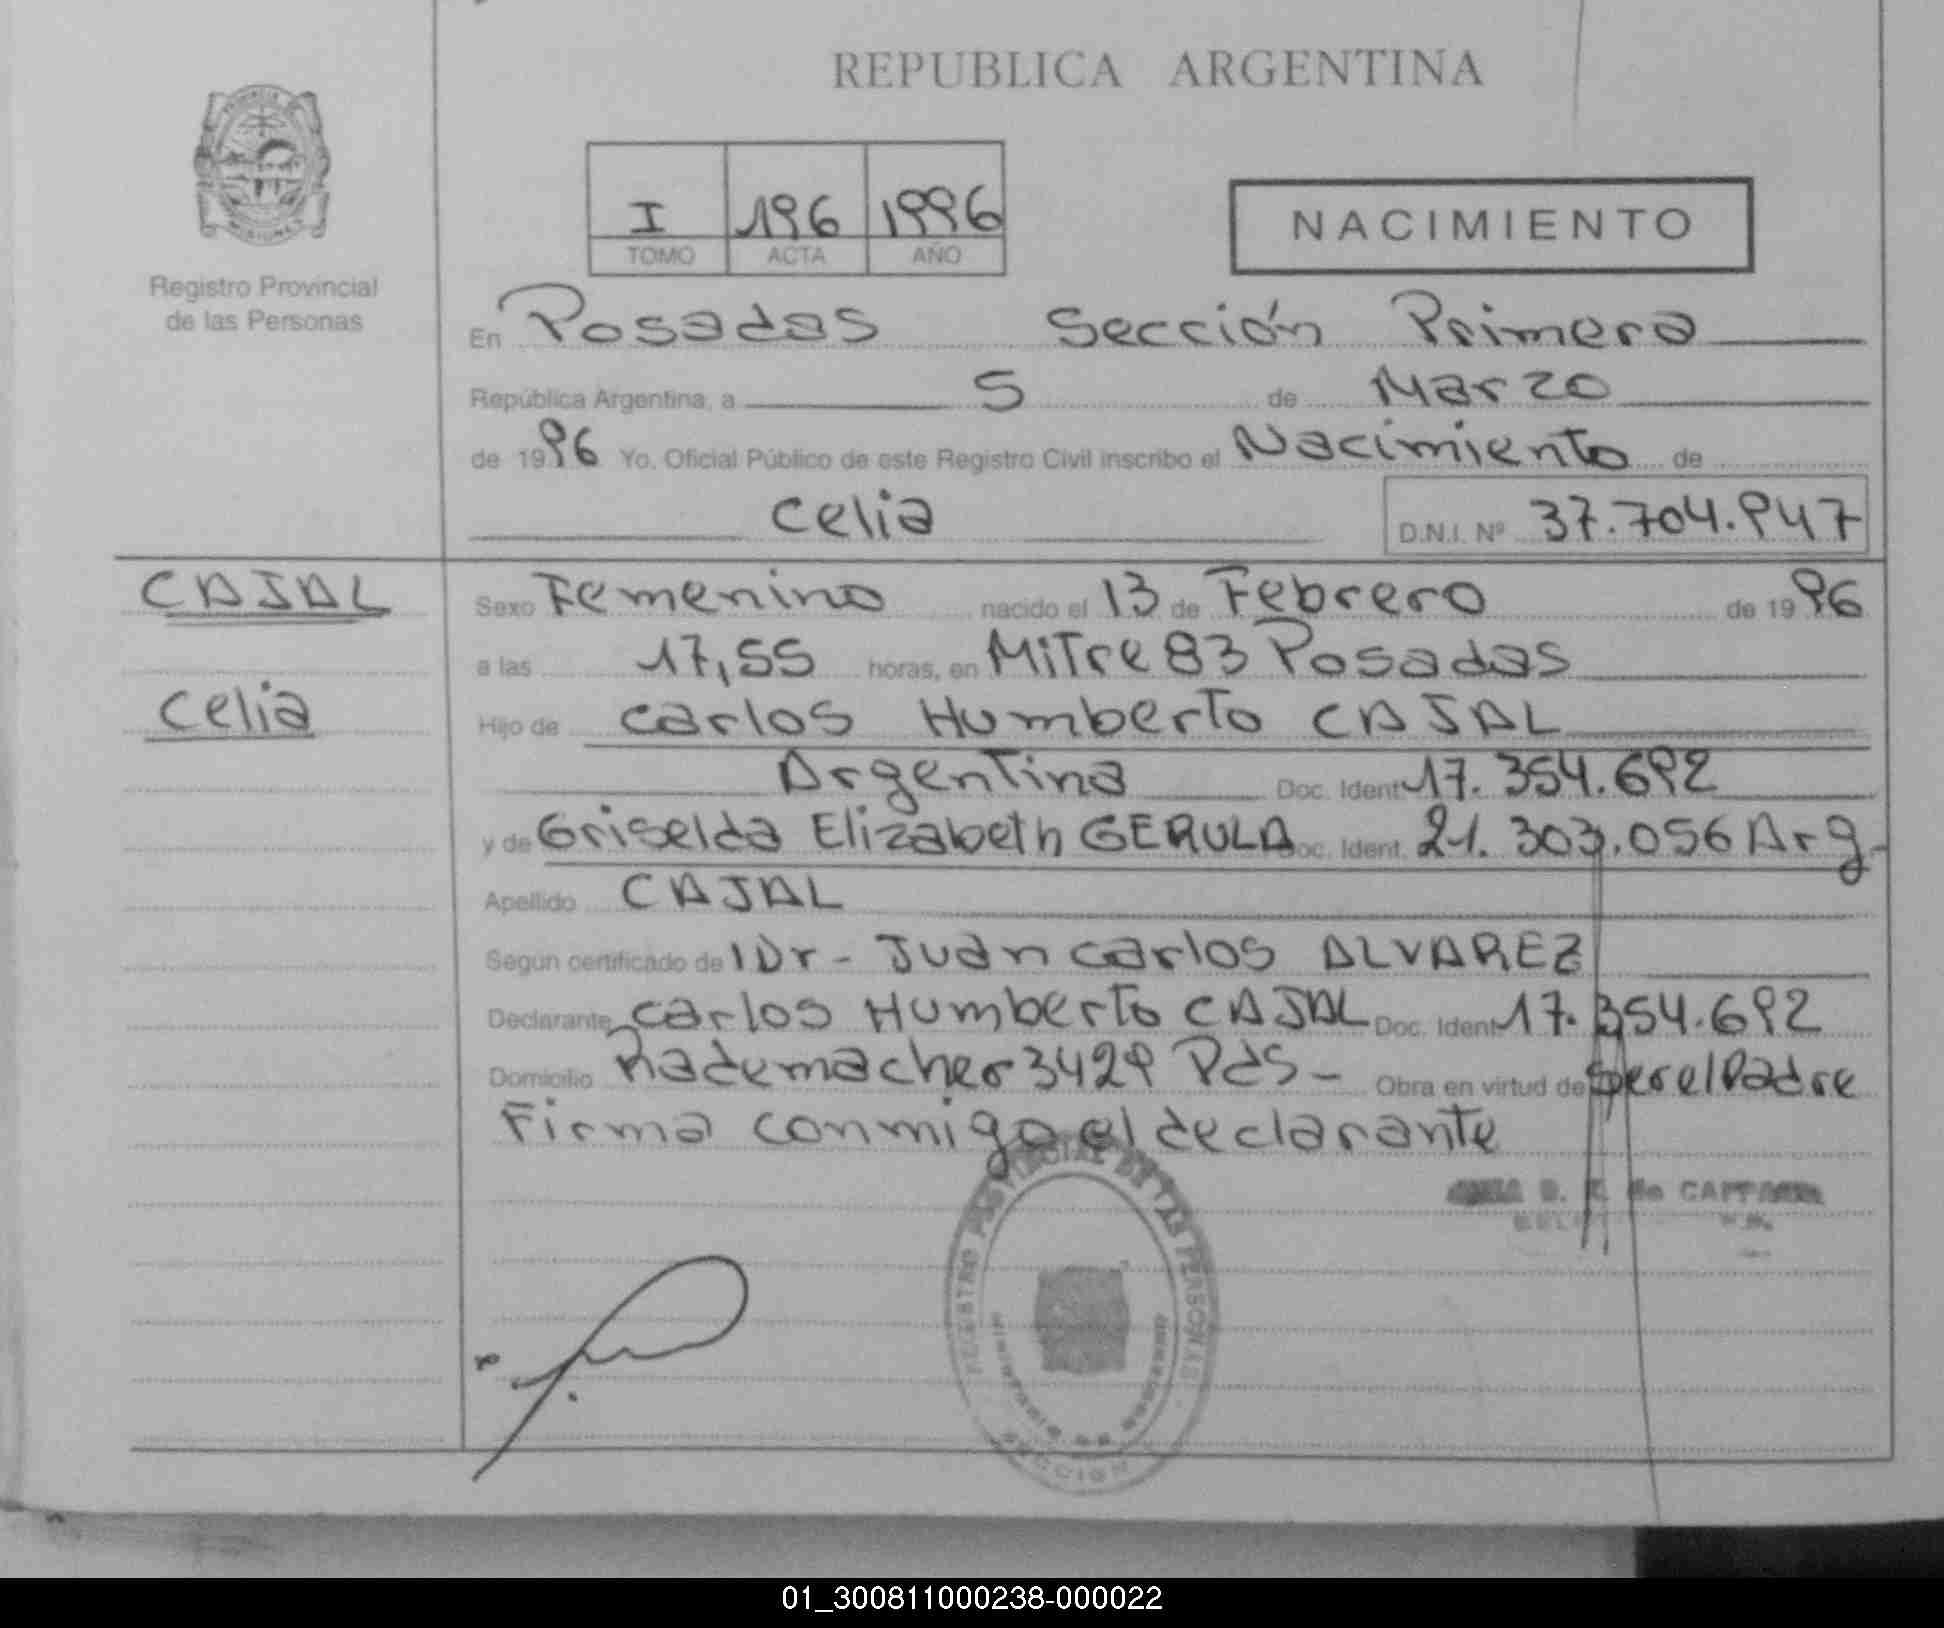 REPUBLICA ARGENTINA
PROVINCIA DE MISIONES
Registro Provincial
de las Personas
I 196 1996
TOMO ACTA AÑO
NACIMIENTO
En Posadas Sección Primera
República Argentina, a 5 de Marzo
de 1996 Yo, Oficial Público de este Registro Civil inscribo el Nacimiento de
Celia D.N.I. Nº 37.704.947
CAJAL
Celia
Sexo Femenino nacido el 13 de Febrero de 1996
a las 17,55 horas, en Mitre 83 Posadas
Hijo de Carlos Humberto CAJAL
Argentina Doc. Ident 17.354.692
y de Griselda Elizabeth GERULA Doc. Ident. 21.303.056 Arg.
Apellido CAJAL
Según certificado de Dr- Juan Carlos ALVAREZ
Declarante Carlos Humberto CAJAL Doc. Ident 17.354.692
Domicilio Rademacher 3429 Pds- Obra en virtud de ser el Padre
Firma conmigo el declarante
REGISTRO PROVINCIAL DE LAS PERSONAS
MINISTERIO DE GOBIERNO
SECCION
01_300811000238-000022